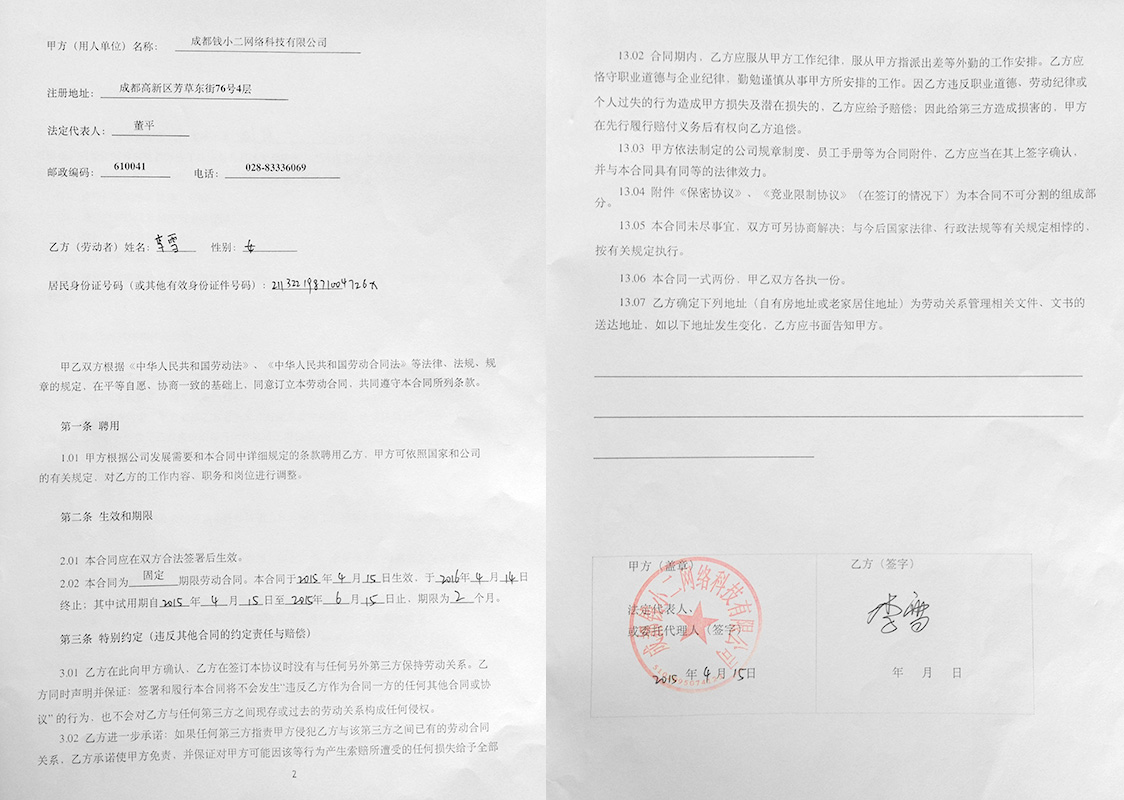 甲方（用人单位）名称： 成都钱小二网络科技有限公司
注册地址： 成都高新区芳草东街76号4层
法定代表人： 董平
邮政编码： 610041 电话： 028-83336069
乙方（劳动者）姓名：李雪 性别：女
居民身份证号码（或其他有效身份证件号码）：21132219871004726X
甲乙双方根据《中华人民共和国劳动法》、《中华人民共和国劳动合同法》等法律、法规、规
章的规定，在平等自愿、协商一致的基础上，同意订立本劳动合同，共同遵守本合同所列条款。
第一条 聘用
1.01 甲方根据公司发展需要和本合同中详细规定的条款聘用乙方，甲方可依照国家和公司
的有关规定，对乙方的工作内容、职务和岗位进行调整。
第二条 生效和期限
2.01 本合同应在双方合法签署后生效。
2.02 本合同为 固定 期限劳动合同。本合同于2015年 4 月 15 日生效，于 2016年 4 月 14 日
终止；其中试用期自2015 年 4 月 15 日至 2015年 6 月 15 日止，期限为 2 个月。
第三条 特别约定（违反其他合同的约定责任与赔偿）
3.01 乙方在此向甲方确认，乙方在签订本协议时没有与任何另外第三方保持劳动关系。乙
方同时声明并保证：签署和履行本合同将不会发生“违反乙方作为合同一方的任何其他合同或协
议”的行为，也不会对乙方与任何第三方之间现存或过去的劳动关系构成任何侵权。
3.02 乙方进一步承诺：如果任何第三方指责甲方侵犯乙方与该第三方之间已有的劳动合同
关系，乙方承诺使甲方免责，并保证对甲方可能因该等行为产生索赔所遭受的任何损失给予全部
2
13.02 合同期内，乙方应服从甲方工作纪律，服从甲方指派出差等外勤的工作安排。乙方应
恪守职业道德与企业纪律，勤勉谨慎从事甲方所安排的工作。因乙方违反职业道德、劳动纪律或
个人过失的行为造成甲方损失及潜在损失的，乙方应给予赔偿；因此给第三方造成损害的，甲方
在先行履行赔付义务后有权向乙方追偿。
13.03 甲方依法制定的公司规章制度、员工手册等为合同附件，乙方应当在其上签字确认，
并与本合同具有同等的法律效力。
13.04 附件《保密协议》、《竞业限制协议》（在签订的情况下）为本合同不可分割的组成部
分。
13.05 本合同未尽事宜，双方可另协商解决；与今后国家法律、行政法规等有关规定相悖的，
按有关规定执行。
13.06 本合同一式两份，甲乙双方各执一份。
13.07 乙方确定下列地址（自有房地址或老家居住地址）为劳动关系管理相关文件、文书的
送达地址，如以下地址发生变化，乙方应书面告知甲方。
甲方（盖章）
法定代表人、
或委托代理人（签字）
成都钱小二网络科技有限公司
2015 年 4 月 15日
乙方（签字）
李雪
年 月 日